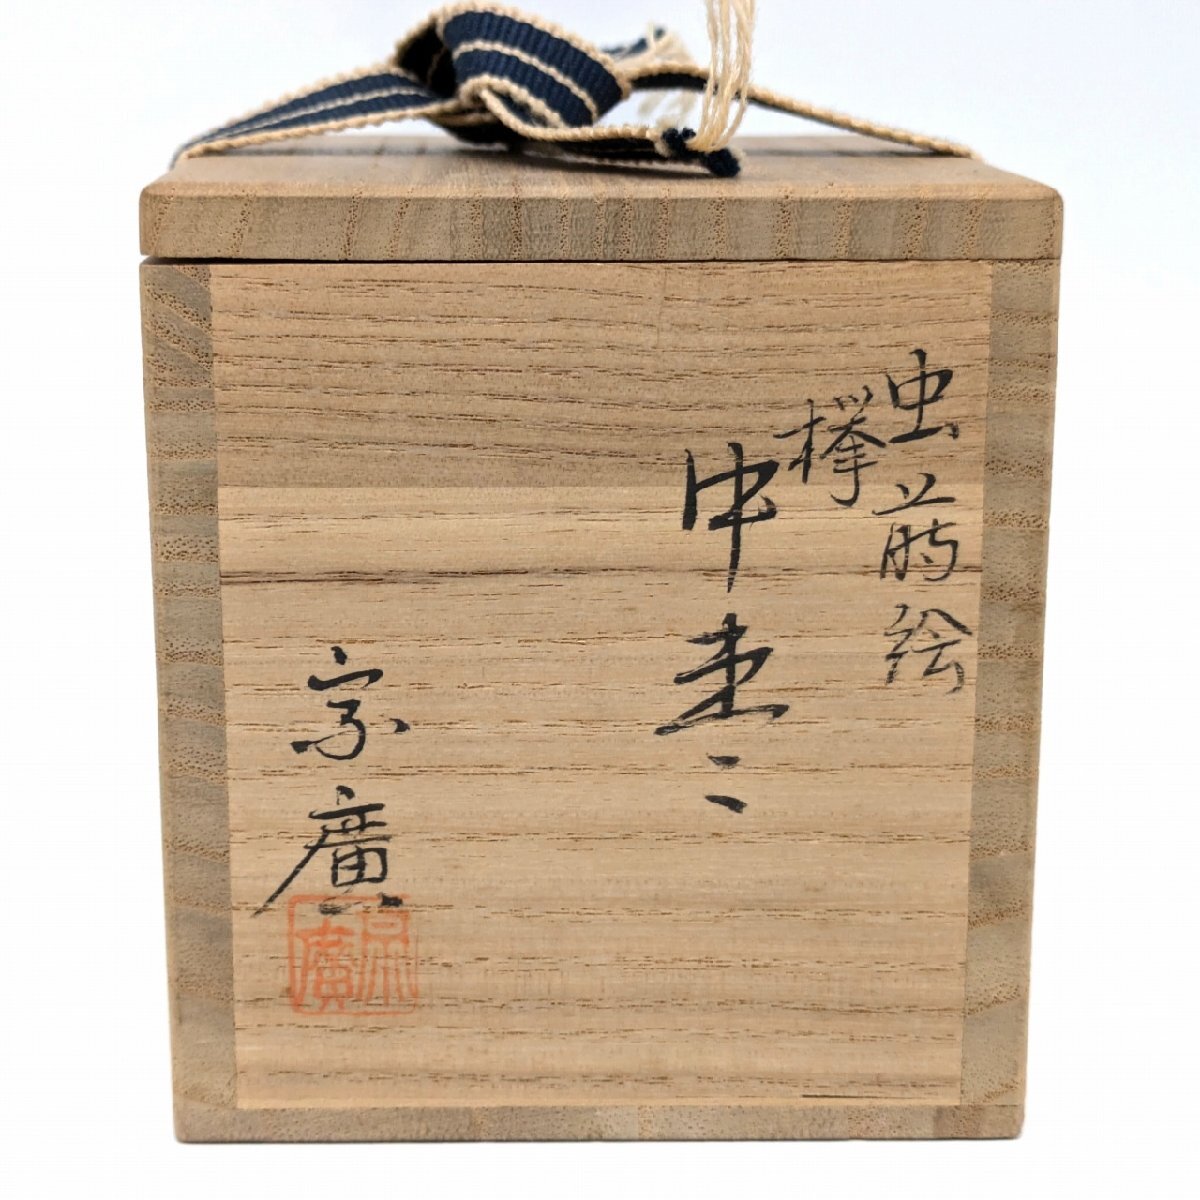 虫蒔絵
欅
中棗
宗廣
宗廣